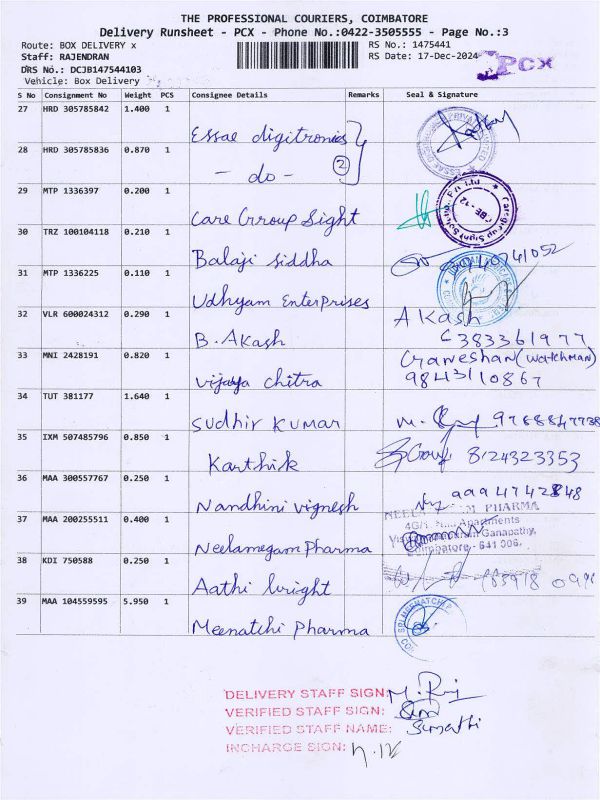 THE PROFESSIONAL COURIERS, COIMBATORE
Delivery Runsheet - PCX - Phone No.:0422-3505555 - Page No.:3
Route: BOX DELIVERY x
RS No.: 1475441
Staff: RAJENDRAN
RS Date: 17-Dec-2024
DRS No.: DCJB147544103
PCX
Vehicle: Box Delivery
S No Consignment No Weight PCS Consignee Details Remarks Seal & Signature
27 HRD 305785842 1.400 1 Essae digitronics
28 HRD 305785836 0.870 1 - do - 2
29 MTP 1336397 0.200 1 Care Group Sight
30 TRZ 100104118 0.210 1 Balaji Siddha
31 MTP 1336225 0.110 1 Udhyam Enterprises
32 VLR 600024312 0.290 1 B. Akash Akash
6383361977
33 MNI 2428191 0.820 1 Vijaya chitra Ganeshan (watchman)
9843110867
34 TUT 381177 1.640 1 Sudhir Kumar
35 IXM 507485796 0.850 1 Karthik 8124323353
36 MAA 300557767 0.250 1 Nandhini vignesh
37 MAA 200255511 0.400 1 Neelamegam Pharma
PHARMA
Apartments
Ganapathy,
Coimbatore - 641 006.
38 KDI 750588 0.250 1 Aathi bright
39 MAA 104559595 5.950 1 Meenatchi Pharma
DELIVERY STAFF SIGN:
VERIFIED STAFF SIGN:
VERIFIED STAFF NAME: Sumathi
INCHARGE SIGN: